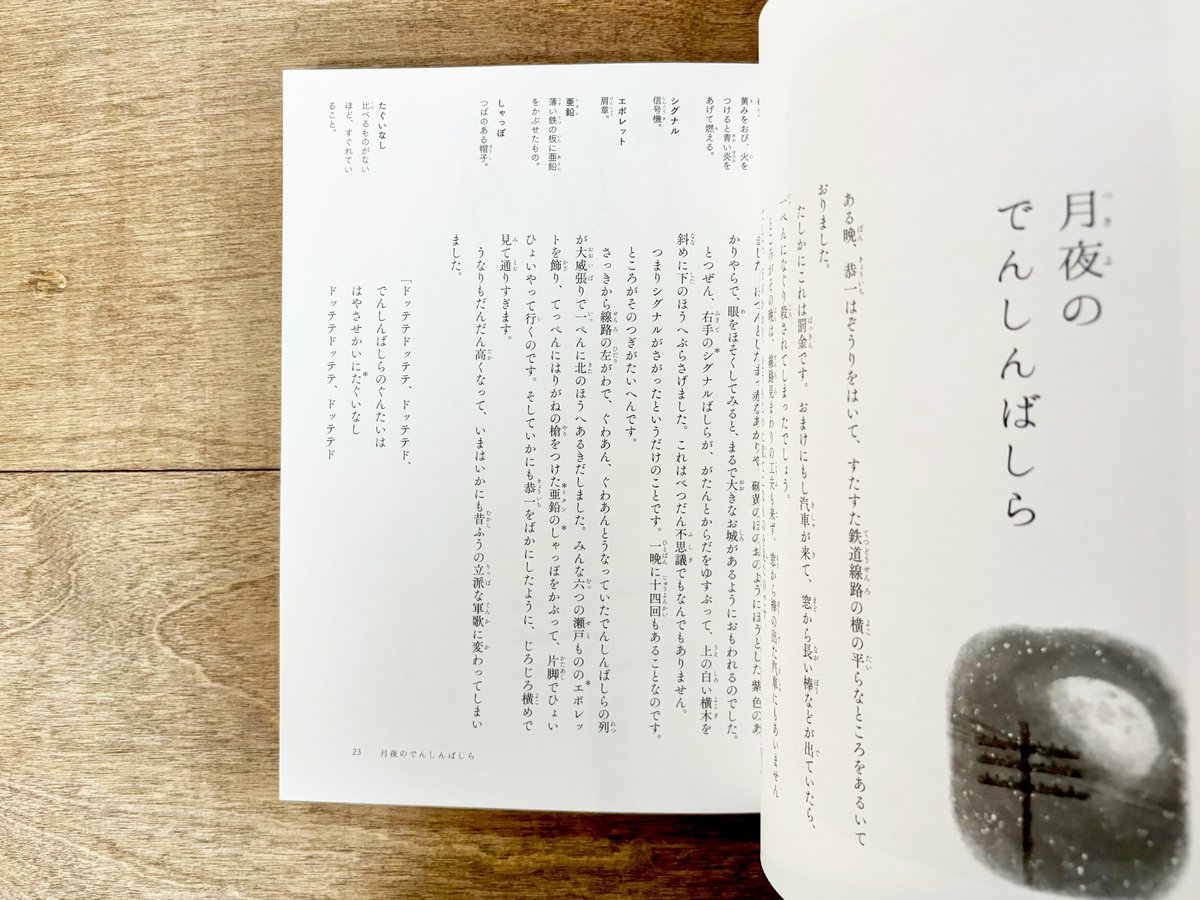 月夜の
でんしんばしら
ある晩、恭一はぞうりをはいて、すたすた鉄道線路の横の平らなところをあるいて
おりました。
たしかにこれは罰金です。おまけにもし汽車が来て、窓から長い棒などが出ていたら、
一ぺんになぐり殺されてしまったでしょう。
ところがその晩は、線路見まわりの工夫も来ず、窓から棒の出た汽車にもあいません
黄みをおび、火を
つけると青い炎を
あげて燃える。
シグナル
信号機。
エボレット
肩章。
亜鉛
薄い鉄の板に亜鉛
をかぶせたもの。
しゃっぽ
つばのある帽子。
たぐいなし
比べるものがない
ほど、すぐれてい
ること。
かりやらで、眼をほそくしてみると、まるで大きなお城があるようにおもわれるのでした。
とつぜん、右手のシグナル*ばしらが、がたんとからだをゆすぶって、上の白い横木を
斜めに下のほうへぶらさげました。これはべつだん不思議でもなんでもありません。
つまりシグナルがさがったというだけのことです。一晩に十四回もあることなのです。
ところがそのつぎがたいへんです。
さっきから線路の左がわで、ぐわあん、ぐわあんとうなっていたでんしんばしらの列
が大威張りで一ぺんに北のほうへあるきだしました。みんな六つの瀬戸もののエボレッ*
トを飾り、てっぺんにはりがねの槍をつけた亜鉛*のしゃっぽ*をかぶって、片脚でひょい
ひょいやって行くのです。そしていかにも恭一をばかにしたように、じろじろ横めで
見て通りすぎます。
うなりもだんだん高くなって、いまはいかにも昔ふうの立派な軍歌に変わってしまい
ました。
「ドッテテドッテテ、ドッテテド、
でんしんばしらのぐんたいは
はやさせかいにたぐいなし*
ドッテテドッテテ、ドッテテド
23 月夜のでんしんばしら